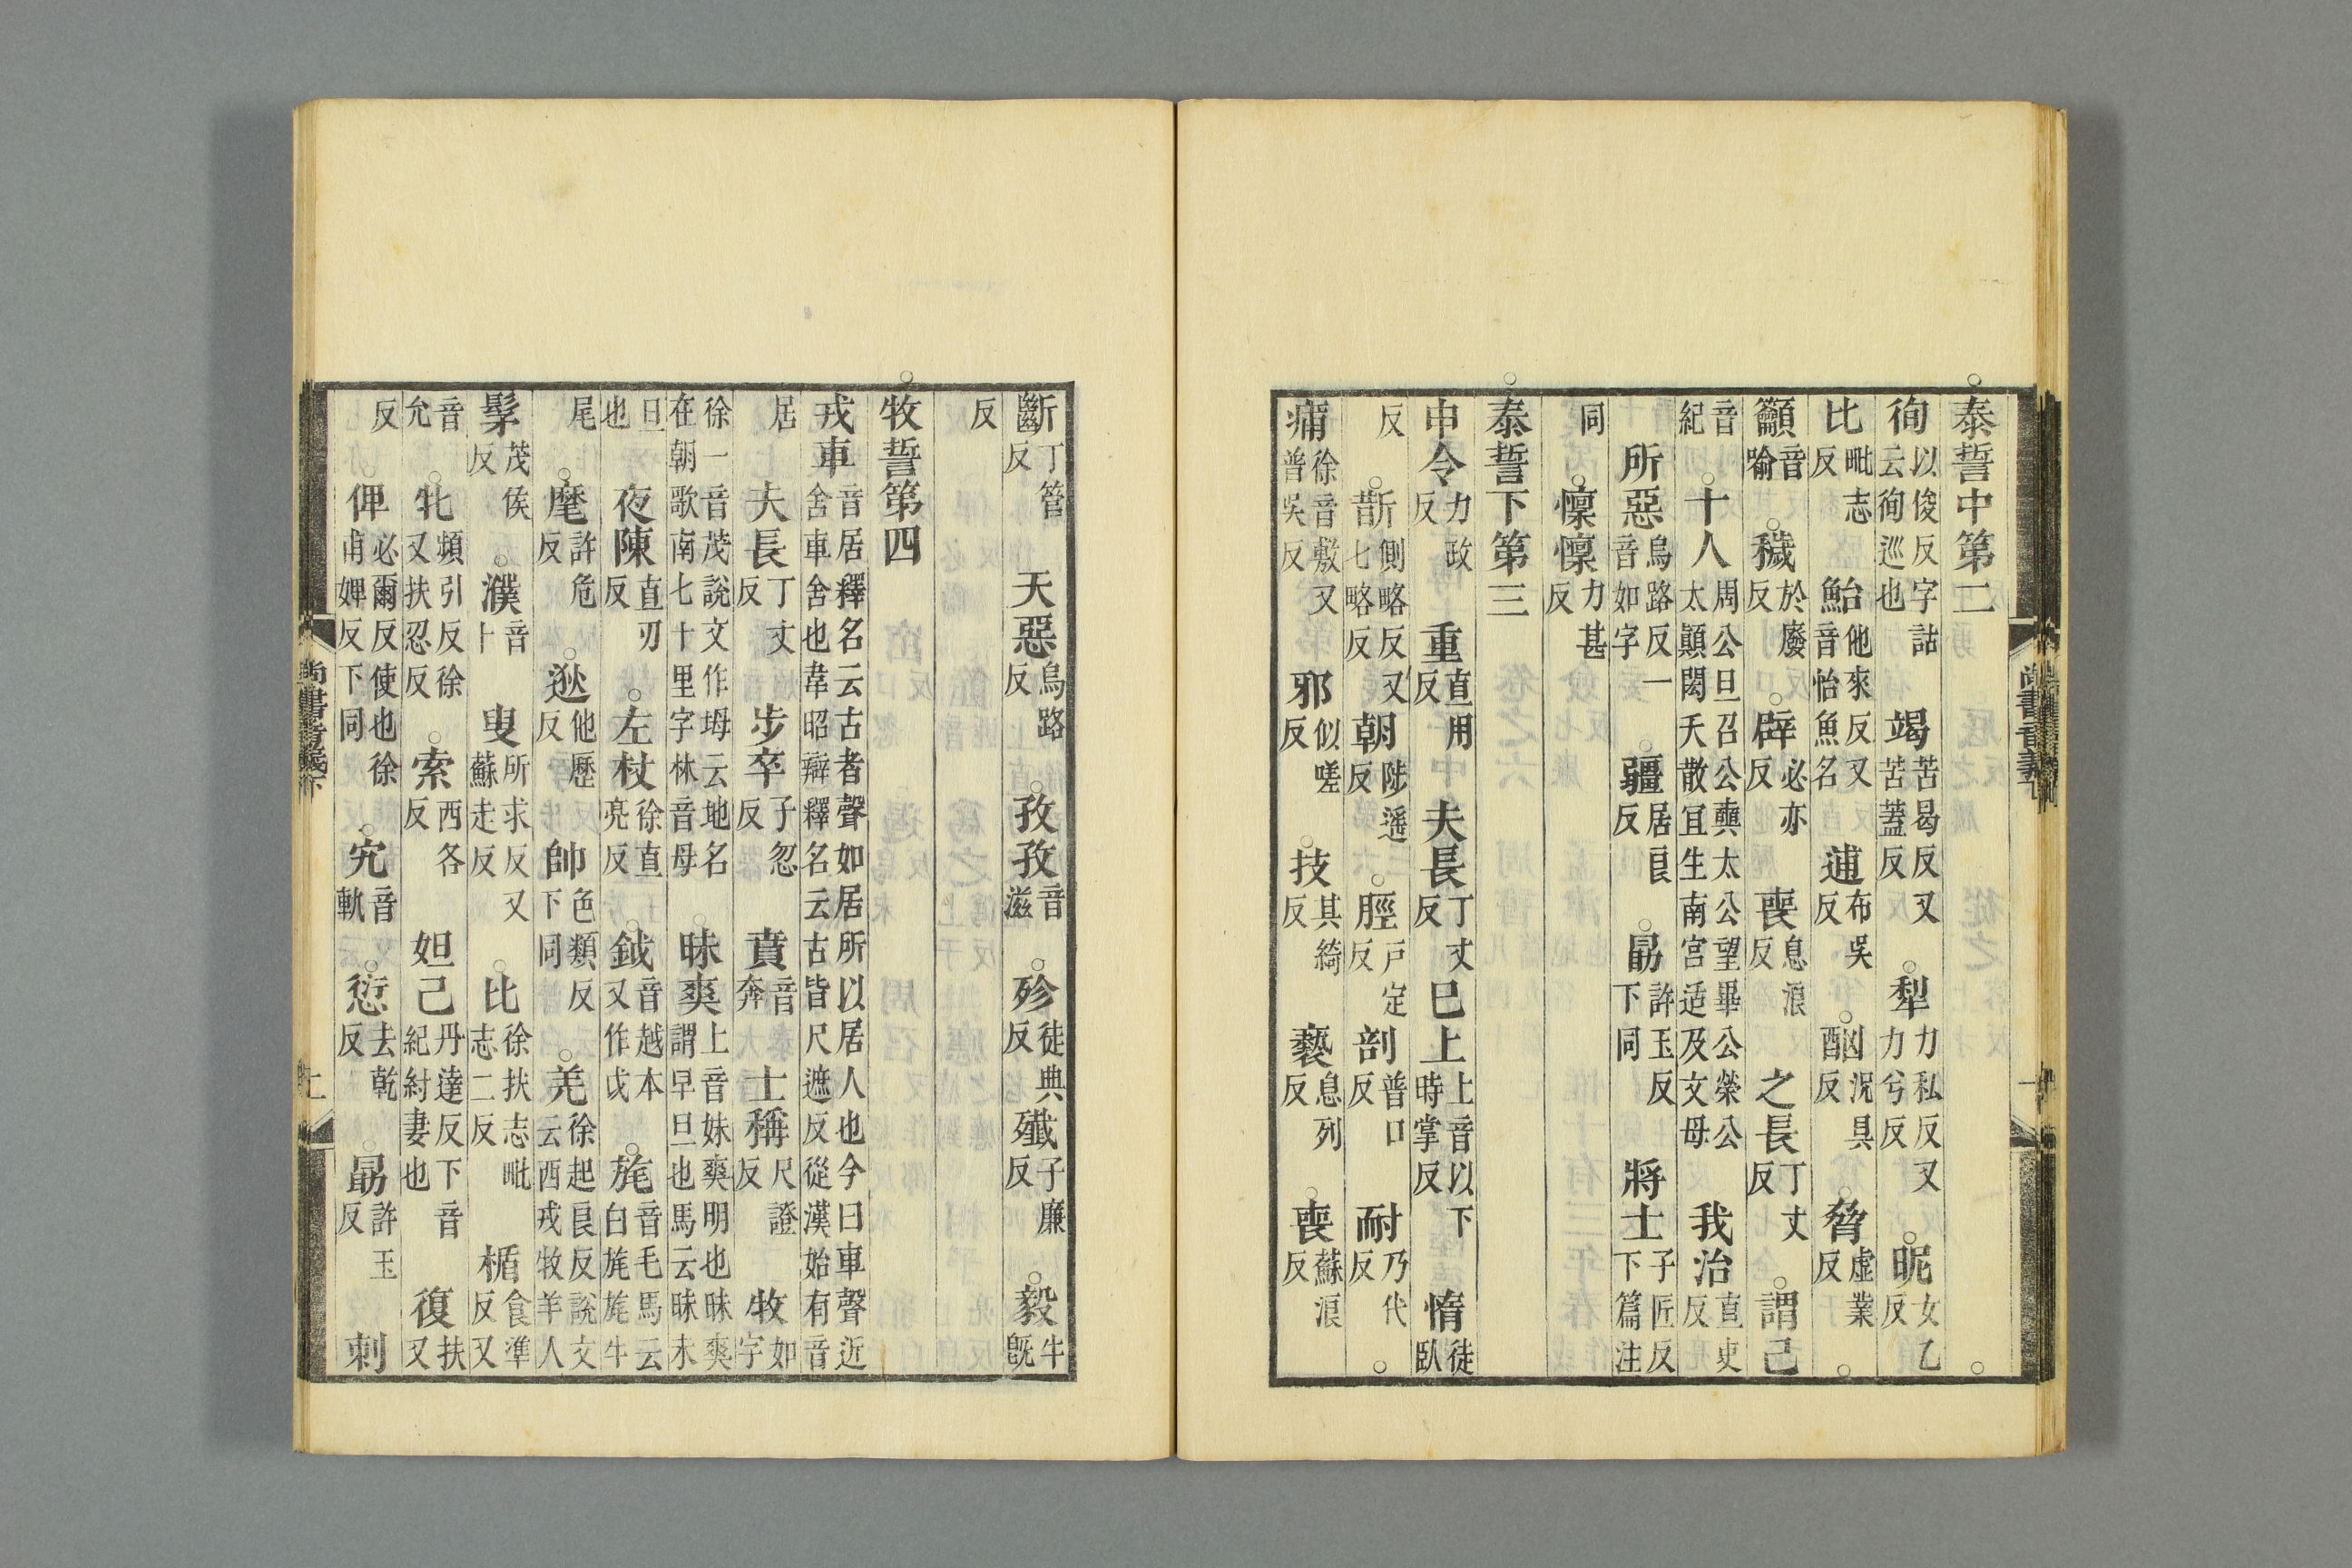 泰誓中第二
徇以俊反字詁云徇巡也 竭苦曷反又苦蓋反 犁力私反又力兮反 昵女乙反
比毗志反 鮐他來反又音怡魚名 逋布吳反 酗況具反 脅虛業反
籲音喻 穢於廢反 辟必亦反 喪息浪反 之長丁丈反 謂己
音紀 十人周公旦召公奭太公望畢公榮公太顛閎夭散宜生南宮适及文母 我治直吏反
所惡烏路反一音如字 疆居良反 勗許玉反下同 將士子匠反下篇注
同 懍懍力甚反
泰誓下第三
申令力政反 重直用反 夫長丁丈反 巳上上音以下時掌反 惰徒臥
反 斮側略反又士略反 朝陟遥反 脛戶定反 剖普口反 耐乃代反
痡徐音敷又普吳反 邪似嗟反 技其綺反 褻息列反 喪蘇浪反
斷丁管反 天惡烏路反 孜孜音滋 殄徒典反 殲子廉反 毅牛既
反
牧誓第四
戎車音居釋名云古者聲如居所以居人也今曰車聲近舍車舍也韋昭辯釋名云古皆尺遮反從漢始有音
居 夫長丁丈反 步卒子忽反 賁音奔 士稱尺證反 牧如字
徐一音茂說文作坶云地名在朝歌南七十里字林音母 昧爽上音妹爽明也昧爽謂早旦也馬云昧未
旦也 夜陳直刃反 左杖徐直亮反 鉞音越本又作戉 旄音毛馬云白旄旄牛
尾 麾許危反 逖他歷反 帥色類反下同 羌徐起良反說文云西戎牧羊人
髳茂侯反 濮音卜 叟所求反又蘇走反 比徐扶志毗志二反 楯食準反又
音允 牝頻引反徐又扶忍反 索西各反 妲己丹達反下音紀紂妻也 復扶又
反 俾必爾反使也徐甫婢反下同 宄音軌 愆去乾反 勗許玉反 刺
尚書音義下